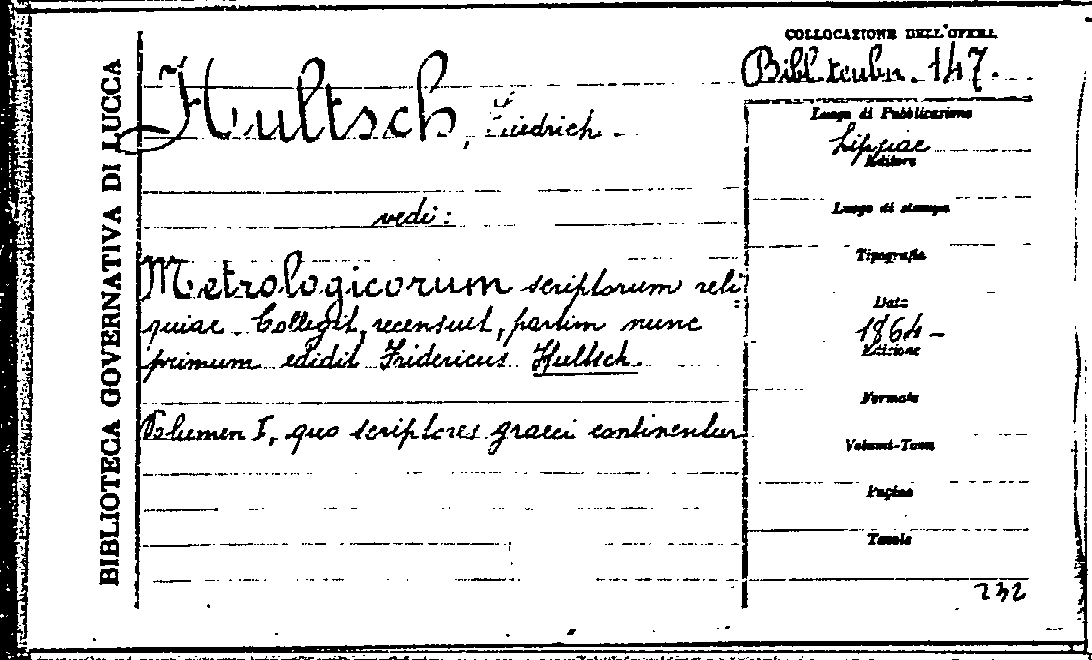 BIBLIOTECA GOVERNATIVA DI LUCCA
COLLOCAZIONE DELL'OPERA
Bibl. teubn. 147.
Hultsch, Friedrich.
vedi:
Metrologicorum scriptorum reli
quiae. Collegit, recensuit, partim nunc
primum edidit Fridericus Hultsch.
Volumen I, quo scriptores graeci continentur
Luogo di Pubblicazione
Lipsiae
Editore
Luogo di stampa
Tipografia
Data
1864-
Edizione
Formato
Volumi-Tomi
Pagine
Tavole
232